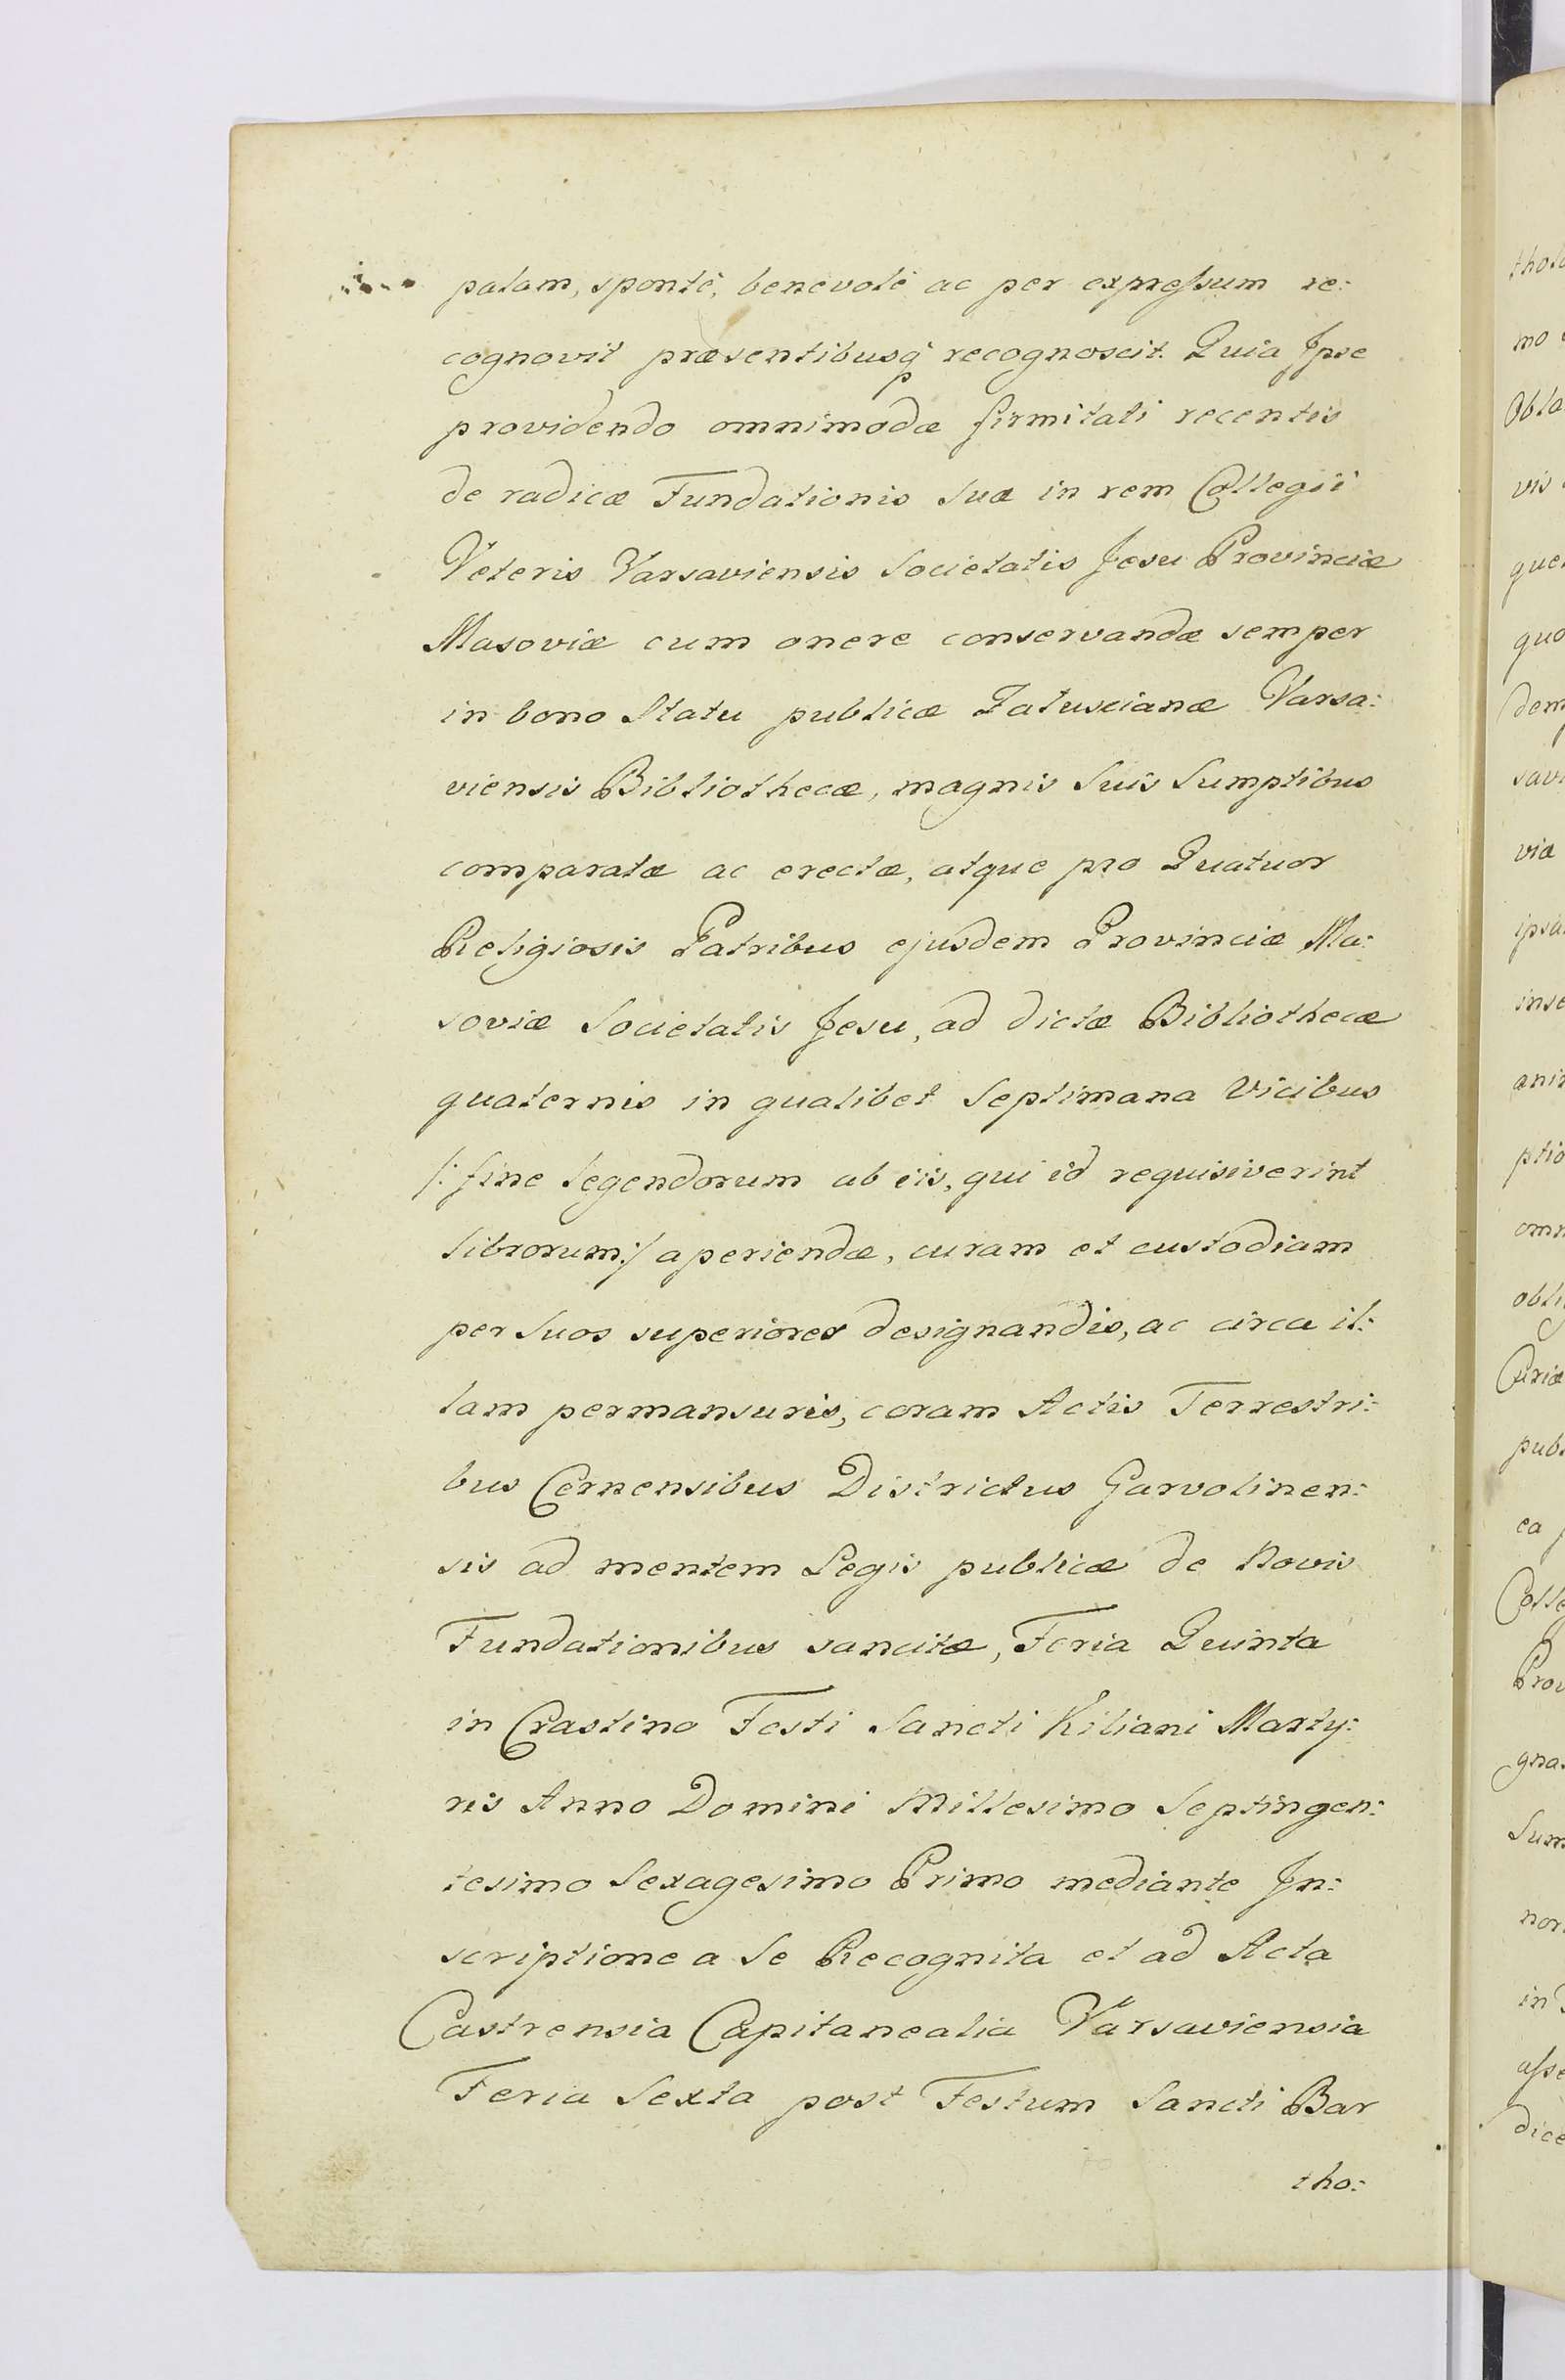 palam, sponté, benevolé ac per expreſsum re:
cognovit præsentibusq́ recognoscit. Quia Jpse
providendo omnimodæ firmitati recentis
de radicæ Fundationis Suæ in rem Collegii
Veteris Varsaviensis Societatis Jesu Provinciæ
Masoviæ cum onere conservandæ semper
in bono Statu publicæ Zaluscianæ Varsa:
viensis Bibliothecæ, magnis Suis Sumptibus
comparatæ ac erectæ, atque pro Quatuor
Religiosis Patribus ejusdem Provinciæ Ma:
soviæ Societatis Jesu, ad dictæ Bibliothecæ
quaternis in qualibet Septimana Vicibus
/: fine legendorum ab iis, qui id requisiverint
librorum :/ aperiendæ, curam et custodiam
per Suos superiores designandis, ac circa il:
lam permansuris, coram Actis Terrestri:
bus Cernensibus Districtus Garvolinen:
sis ad mentem Legis publicæ de Novis
Fundationibus sancitæ, Feria Quinta
in Crastino Festi Sancti Kiliani Marty:
ris Anno Domini Millesimo Septingen:
tesimo Sexagesimo Primo mediante Jn:
scriptione a Se Recognita et ad Acta
Castrensia Capitanealia Varsaviensia
Feria Sexta post Festum Sancti Bar
tho: